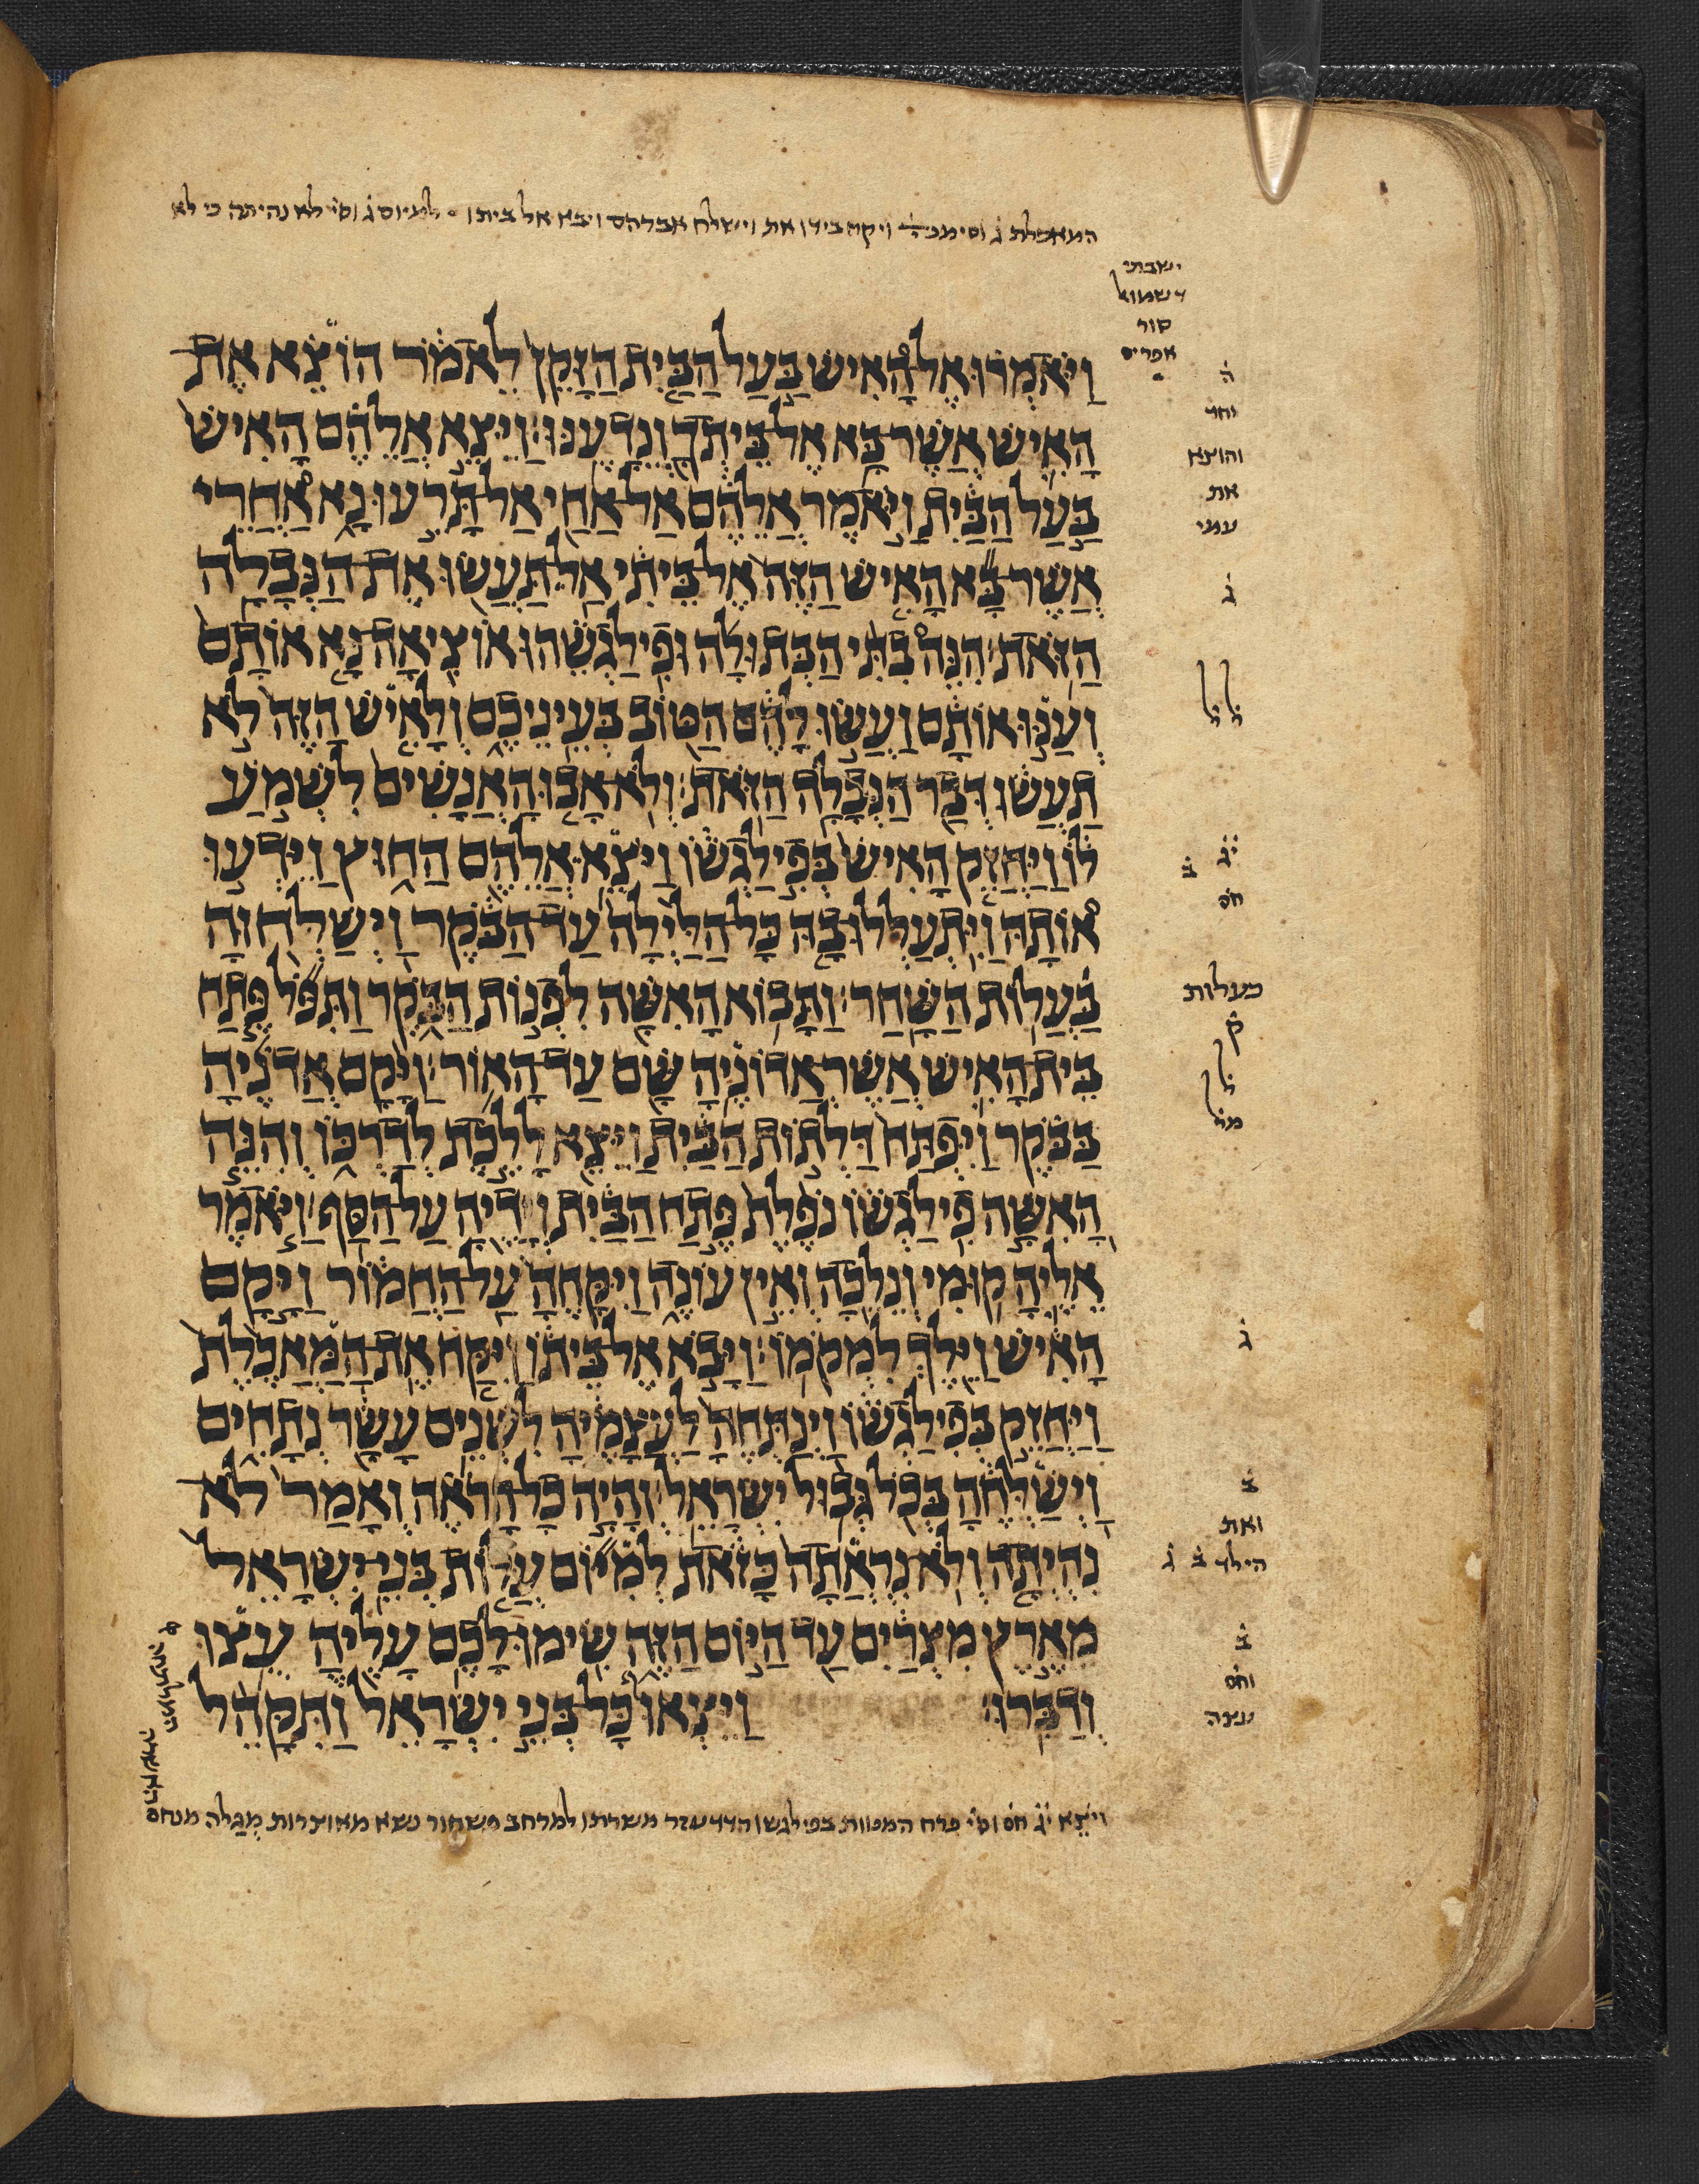 המאכלת ג̇ וסימניה̇ ויקח בידו את וישלח אברהם ויבא אל ביתו ∘ למיום ג̇ וסי̇ לא נהיתה כי לא
ישבתי
דשמואל
סור
אפרים
וַיֹּאמְר֗וּ אֶל־הָ֠אִישׁ בַּ֣עַל הַבַּ֤יִת הַזָּקֵן֙ לֵאמֹ֔ר הוֹצֵ֗א אֶת
הָאִ֛ישׁ אֲשֶׁר־בָּ֥א אֶל־בֵּיתְךָ֖ וְנֵדָעֶֽנּוּ׃ וַיֵּצֵ֣א אֲלֵהֶ֗ם הָאִישׁ֙
בַּ֣עַל הַבַּ֔יִת וַיֹּ֣אמֶר אֲלֵהֶ֔ם אַל־אַחַ֖י אַל־תָּרֵ֣עוּ נָ֑א אַ֠חֲרֵי
אֲשֶׁר־בָּ֞א הָאִ֤ישׁ הַזֶּה֙ אֶל־בֵּיתִ֔י אַֽל־תַּעֲשׂ֖וּ אֶת־הַנְּבָלָ֥ה
הַזֹּֽאת׃ הִנֵּה֩ בִתִּ֨י הַבְּתוּלָ֜ה וּפִֽילַגְשֵׁ֗הוּ אוֹצִֽיאָה־נָּ֤א אוֹתָם֙
וְעַנּ֣וּ אוֹתָ֔ם וַעֲשׂ֣וּ לָהֶ֔ם הַטּ֖וֹב בְּעֵינֵיכֶ֑ם וְלָאִ֤ישׁ הַזֶּה֙ לֹ֣א
תַעֲשׂ֔וּ דְּבַ֖ר הַנְּבָלָ֥ה הַזֹּֽאת׃ וְלֹֽא־אָב֤וּ הָאֲנָשִׁים֙ לִשְׁמֹ֣עַ
ל֔וֹ וַיַּחֲזֵ֤ק הָאִישׁ֙ בְּפִ֣ילַגְשׁ֔וֹ וַיֹּצֵ֥א אֲלֵהֶ֖ם הַח֑וּץ וַיֵּדְע֣וּ
א֠וֹתָהּ וַיִּֽתְעַלְּלוּ־בָ֤הּ כָּל־הַלַּ֙יְלָה֙ עַד־הַבֹּ֔קֶר וַֽיְשַׁלְּח֖וּהָ
בַּעֲל֥וֹת הַשָּֽׁחַר׃ וַתָּבֹ֥א הָאִשָּׁ֖ה לִפְנ֣וֹת הַבֹּ֑קֶר וַתִּפֹּ֞ל פֶּ֣תַח
בֵּית־הָאִ֛ישׁ אֲשֶׁר־אֲדוֹנֶ֥יהָ שָּׁ֖ם עַד־הָאֽוֹר׃ וַיָּ֨קָם אֲדֹנֶ֜יהָ
בַּבֹּ֗קֶר וַיִּפְתַּח֙ דַּלְת֣וֹת הַבַּ֔יִת וַיֵּצֵ֖א לָלֶ֣כֶת לְדַרְכּ֑וֹ וְהִנֵּ֧ה
הָאִשָּׁ֣ה פִֽילַגְשׁ֗וֹ נֹפֶ֙לֶת֙ פֶּ֣תַח הַבַּ֔יִת וְיָדֶ֖יהָ עַל־הַסַּֽף׃ וַיֹּ֧אמֶר
אֵלֶ֛יהָ ק֥וּמִי וְנֵלֵ֖כָה וְאֵ֣ין עֹנֶ֑ה וַיִּקָּחֶ֙הָ֙ עַֽל־הַחֲמ֔וֹר וַיָּ֣קָם
הָאִ֔ישׁ וַיֵּ֖לֶךְ לִמְקֹמֽוֹ׃ וַיָּבֹ֣א אֶל־בֵּית֗וֹ וַיִּקַּ֤ח אֶת־הַֽמַּאֲכֶ֙לֶת֙
וַיַּחֲזֵ֣ק בְּפִֽילַגְשׁ֔וֹ וַֽיְנַתְּחֶ֙הָ֙ לַעֲצָמֶ֔יהָ לִשְׁנֵ֥ים עָשָׂ֖ר נְתָחִ֑ים
וַֽיְשַׁלְּחֶ֔הָ בְּכֹ֖ל גְּב֥וּל יִשְׂרָאֵֽל׃ וְהָיָ֣ה כָל־הָרֹאֶ֗ה וְאָמַר֙ לֹֽא
נִהְיְתָ֤ה וְלֹֽא־נִרְאֲתָה֙ כָּזֹ֔את לְמִיּ֞וֹם עֲל֤וֹת בְּנֵֽי־יִשְׂרָאֵל֙
מֵאֶ֣רֶץ מִצְרַ֔יִם עַ֖ד הַיּ֣וֹם הַזֶּ֑ה שִֽׂימוּ־לָכֶ֥ם עָלֶ֖יהָ עֻ֥צוּ
וְדַבֵּֽרוּ׃ וַיֵּצְאוּ֮ כָּל־בְּנֵ֣י יִשְׂרָאֵל֒ וַתִּקָּהֵ֨ל
ה̇
וחד
והוצא
את
עמי
ג̇
ל ל
י̇ג̇ ב̇
חס̇
כעלות
ק̇
ל
מל̇
ג̇
ב̇
ואת
הילד ב̇ ג̇
ב̇
וחס̇
עצה
ויֹצֵא י̇ג̇ חס̇ וסי̇ פרח המכוות בפילגשו הדדעזר משרתו למרחב פשחור נשא מאוצרות מְגַלה מנחם